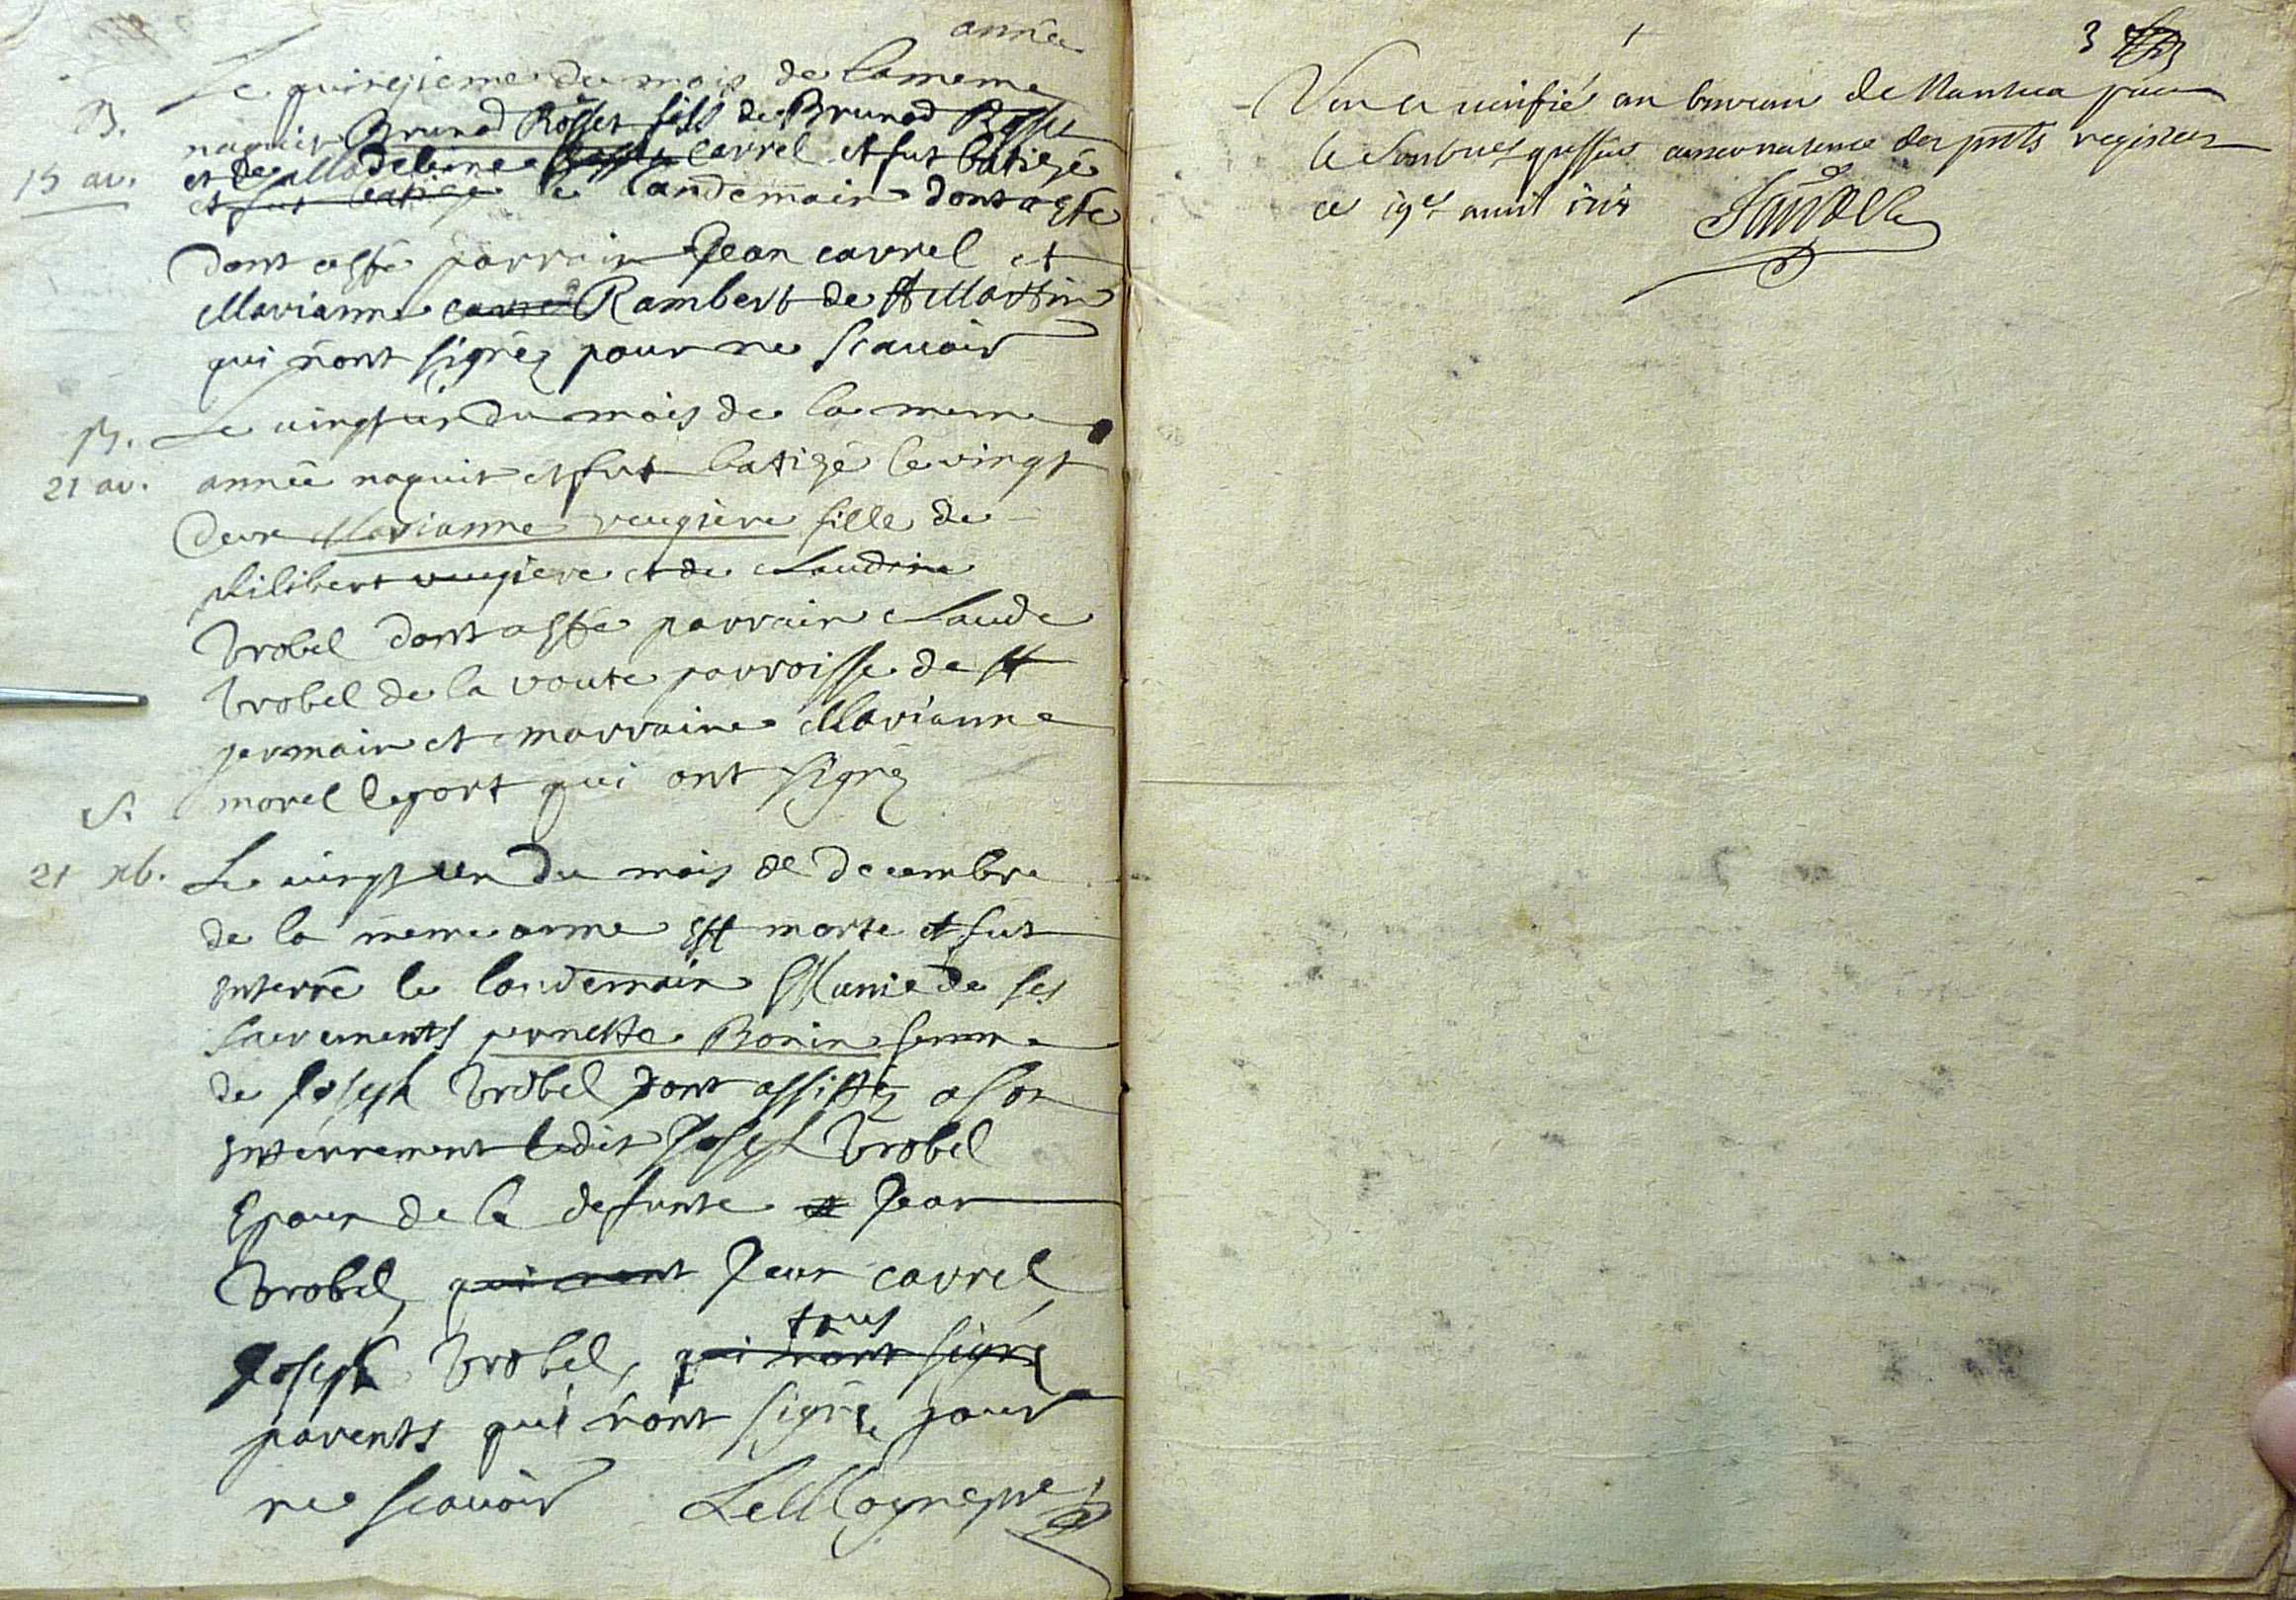 année
Le quinzieme du mois de la meme
B.
naquit Brunod Rosset fils de Brunod Rosset
15 av.
et de Madeleine Carrel et fut batizé
et fut batizé le landemain dont a esté
dont esté parrain Jean carrel et
Marianne carrel Rambert de St Martin
qui n'ont signéz pour ne scauoir
B.
Le vingt un du mois de la meme
21 av.
année naquit et fut batizé le vingt
deux Marianne veugiere fille de
philibert veugiere et de Claudine
Brobel dont a esté parrain Claude
Brobel de la voute parroisse de St
germain et marraine Marianne
morel leport qui ont signéz
S.
21 xb.
Le vingt un du mois de decembre
de la meme anne est morte et fut
enterré le landemain Munie de ses
sacrements pernette Bonin femme
de Joseph Brobel dont assistéz a son
enterrement ledit Joseph Brobel
Epoux de la defunte et Jean
Brobel, qui n'ont Jean carrel,
tous
Joseph Brobel, qui n'ont signé
parents qui n'ont signéz pour
ne scauoir
3
Vu et verifié au bureau de Nantua par
le conservateur des pnts registres
ce 19e avril